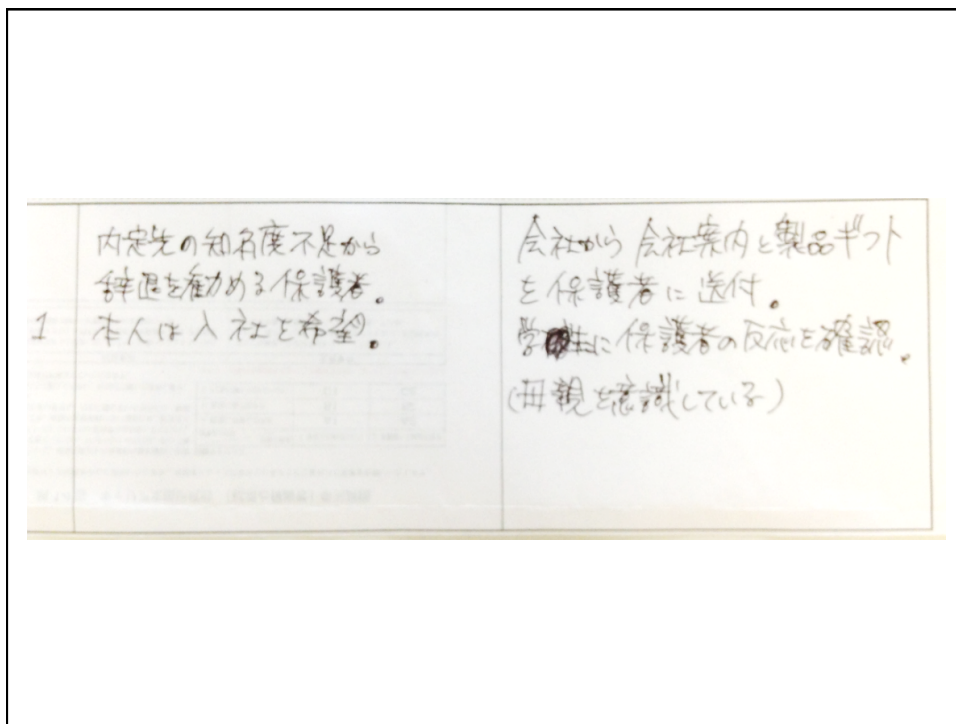 1
内定先の知名度不足から
辞退を勧める保護者。
本人は入社を希望。
会社から会社案内と製品ギフト
を保護者に送付。
学生に保護者の反応を確認。
(母親を意識している)